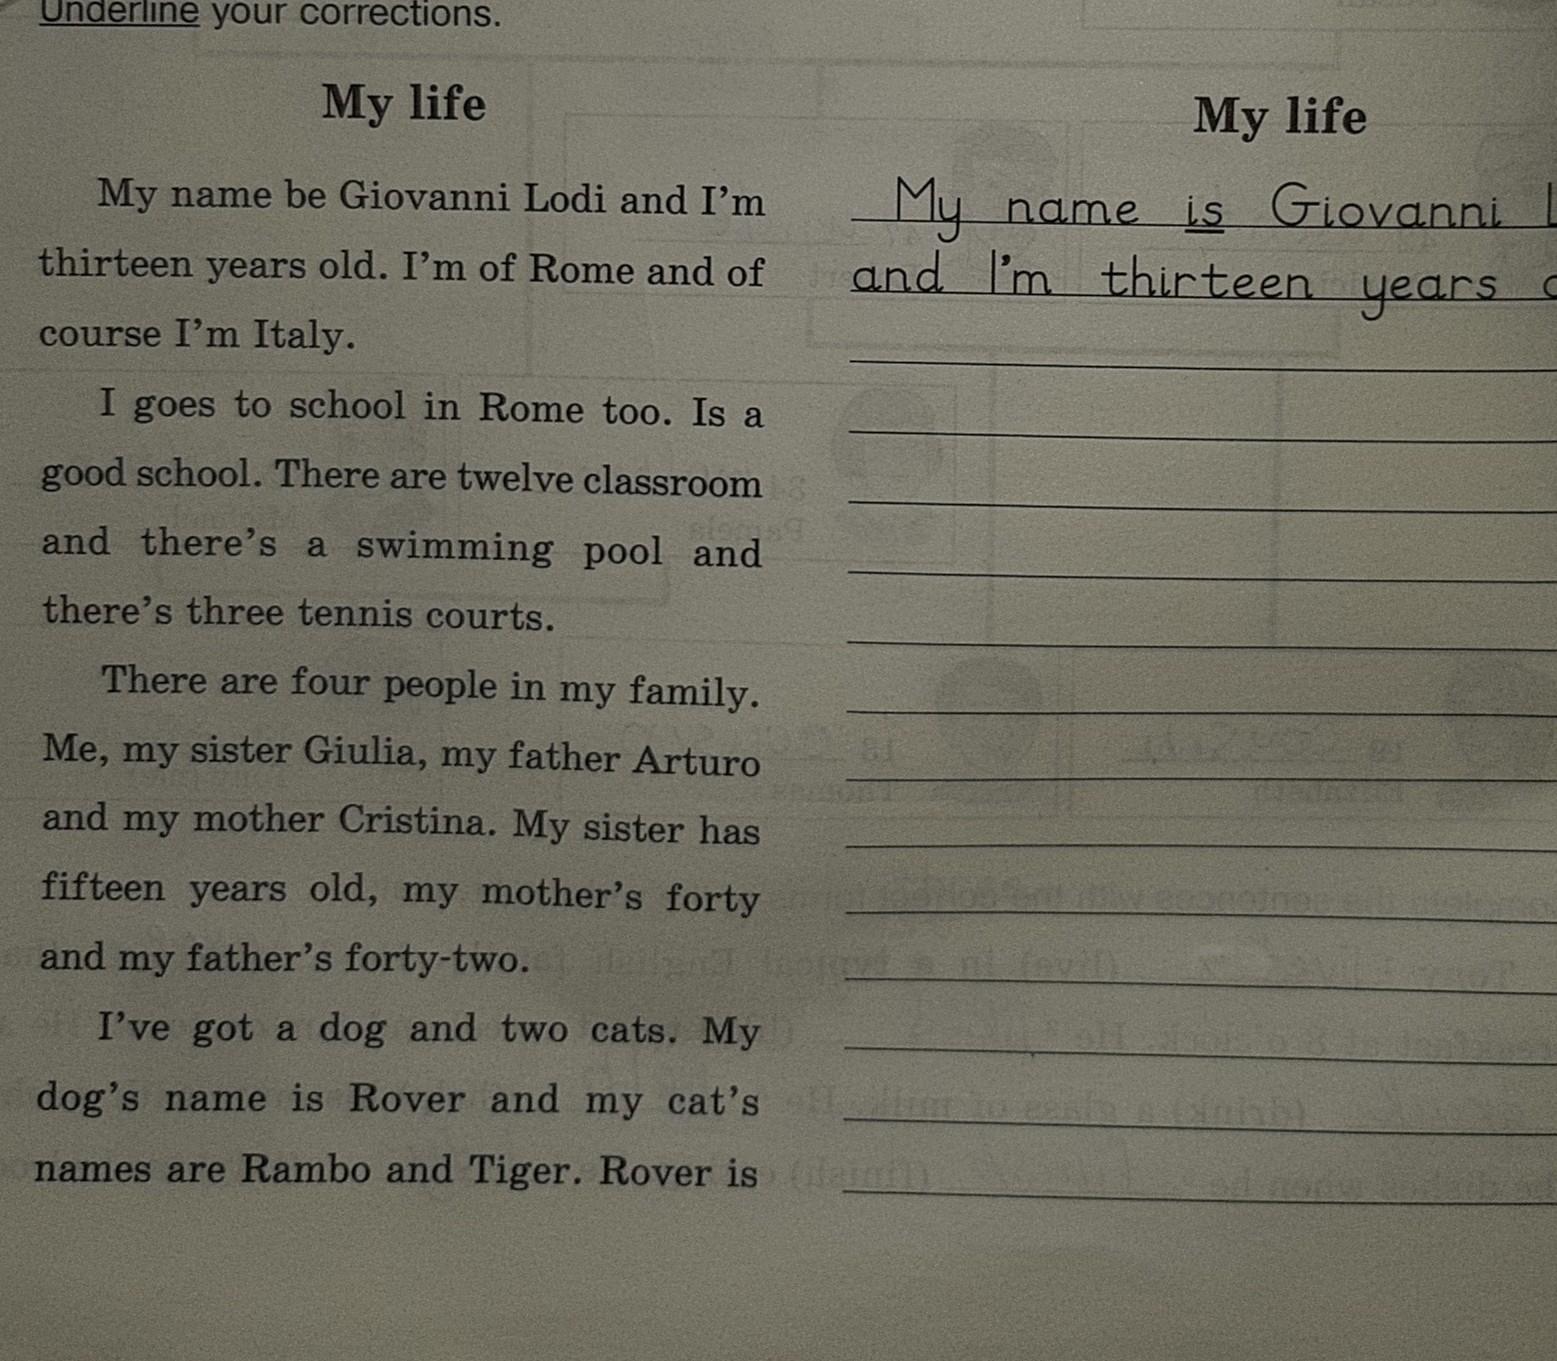 Underline your corrections.
My life
My name be Giovanni Lodi and I'm
thirteen years old. I'm of Rome and of
course I'm Italy.
I goes to school in Rome too. Is a
good school. There are twelve classroom
and there's a swimming pool and
there's three tennis courts.
There are four people in my family.
Me, my sister Giulia, my father Arturo
and my mother Cristina. My sister has
fifteen years old, my mother's forty
and my father's forty-two.
I've got a dog and two cats. My
dog's name is Rover and my cat's
names are Rambo and Tiger. Rover is
My life
My name is Giovanni
and I'm thirteen years